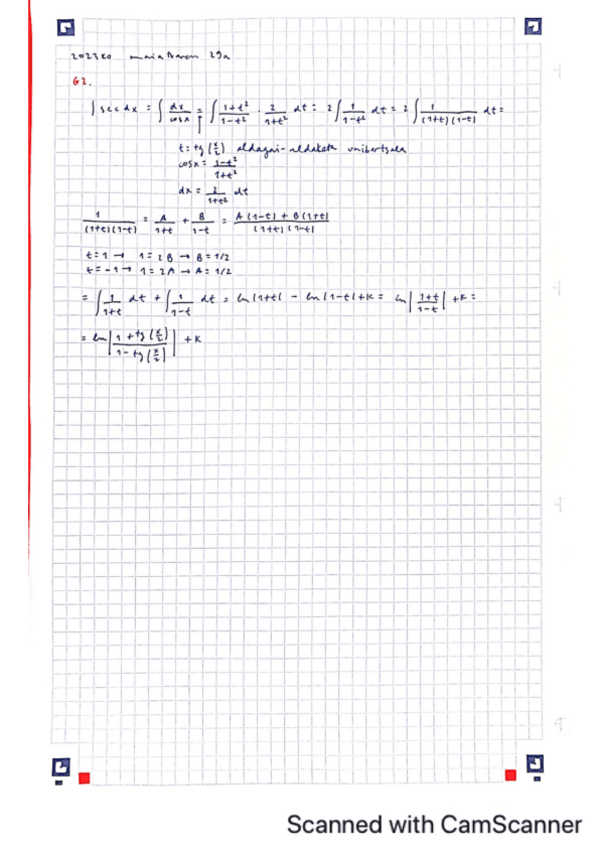 maiatzaren 29a
62.
∫ sec dx = ∫ dx/cosx = ∫ (1+t²)/(1-t²) · 2/(1+t²) dt = 2 ∫ 1/(1-t²) dt = 2 ∫ 1/((1+t)(1-t)) dt =
t = tg(x/2) aldagai-aldaketa unibertsala
cosx = (1-t²)/(1+t²)
dx = 2/(1+t²) dt
1/((1+t)(1-t)) = A/(1+t) + B/(1-t) = (A(1-t) + B(1+t))/((1+t)(1-t))
t = 1 → 1 = 2B → B = 1/2
t = -1 → 1 = 2A → A = 1/2
= ∫ 1/(1+t) dt + ∫ 1/(1-t) dt = ln|1+t| - ln|1-t| + K = ln|(1+t)/(1-t)| + K =
= ln|(1+tg(x/2))/(1-tg(x/2))| + K
Scanned with CamScanner